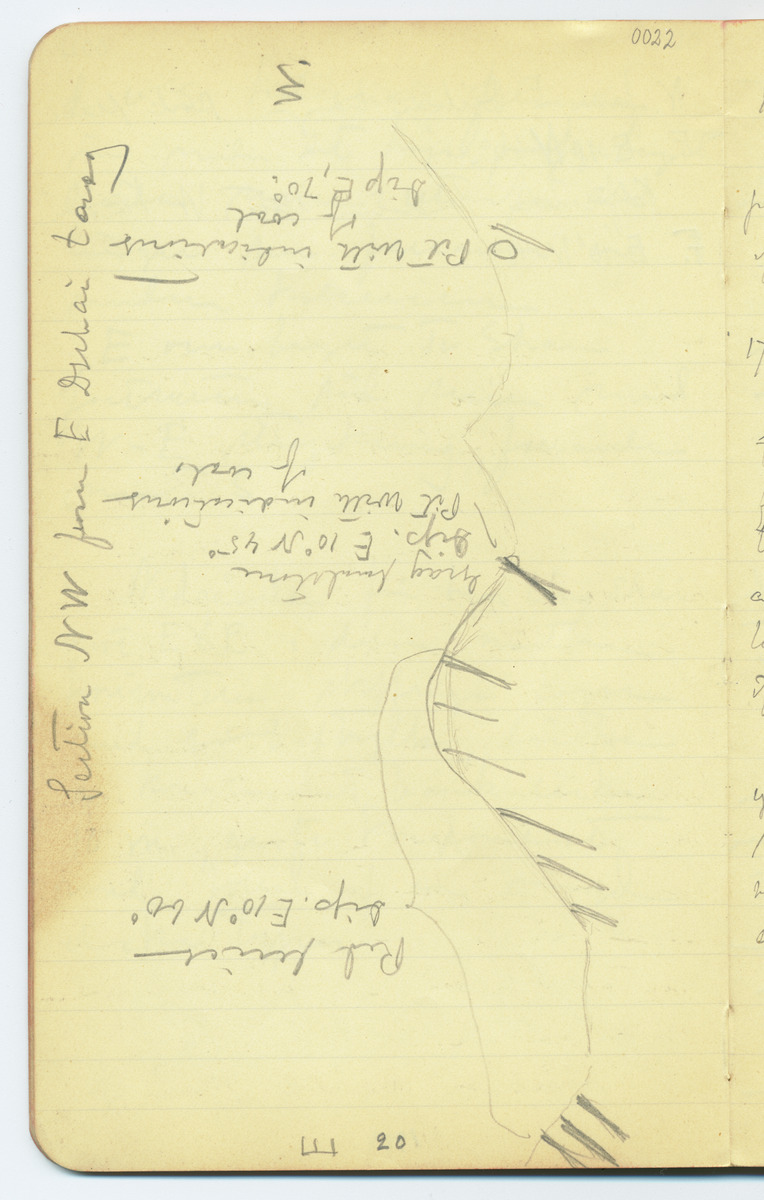 0022
Section NW from E Dschai tarag
W.
Pit with indications
of coal
Dip E, 70°.
Pit with indications
of coals
Gray sandstone
Dip. E 10° N 45°
Red series
Dip. E 10° N 60°
E
20